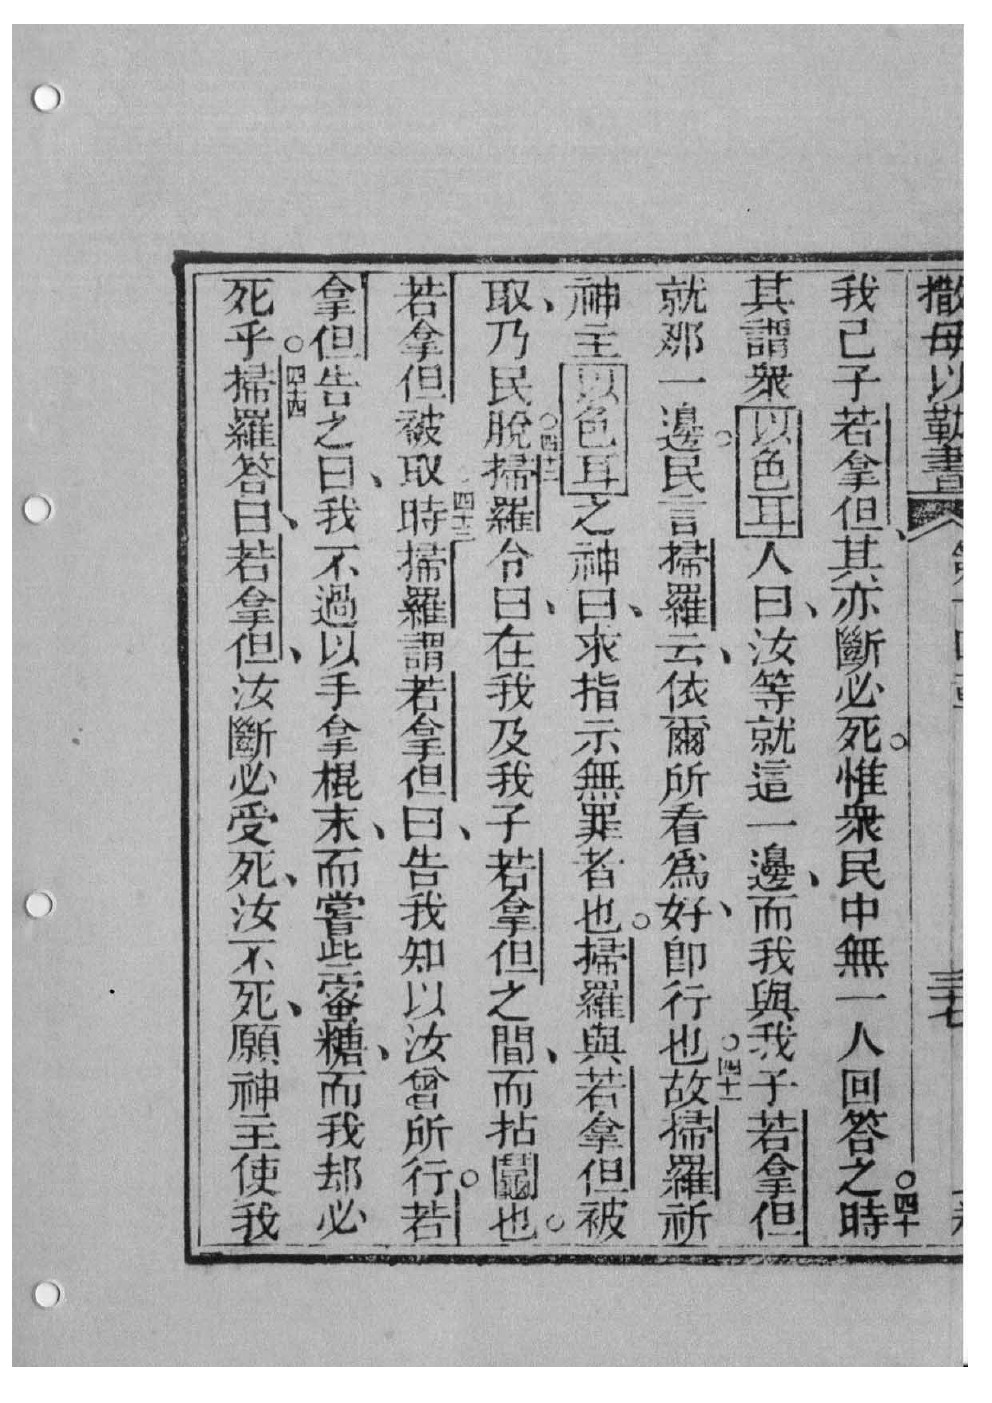 撒母以勒書 三七
我己子若拿但、其亦斷必死。惟衆民中無一人回答之時。四十
其謂衆以色耳人曰、汝等就這一邊、而我與我子若拿但
就那一邊。民言掃羅云、依爾所看爲好、卽行也。四十一故掃羅祈
神主以色耳之神曰、求指示無罪者也。掃羅與若拿但被
取、乃民脫。四十二掃羅令曰、在我及我子若拿但之間、而拈鬮也。
若拿但被取時。四十三掃羅謂若拿但曰、告我知以汝曾所行。若
拿但告之曰、我不過以手拿棍末、而嘗些蜜糖、而我却必
死乎。四十四掃羅答曰、若拿但、汝斷必受死、汝不死、願神主使我